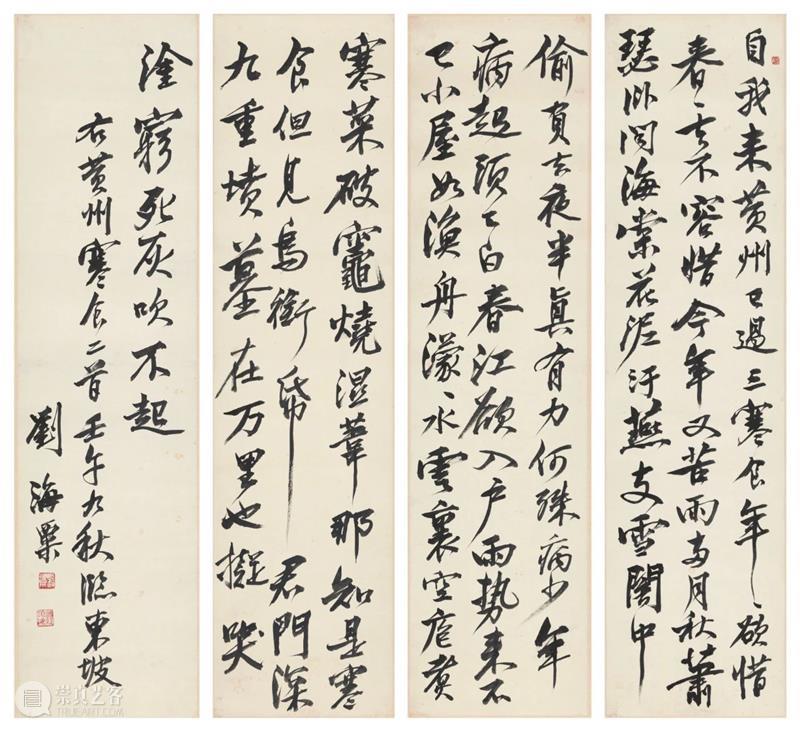 自我来黄州已過三寒食年〻欲惜
春〻去不容惜今年又苦雨两月秋蕭
瑟卧闻海棠花泥汙燕支雪闇中
偷負去夜半真有力何殊病少年
病起頭已白春江欲入户雨势来不
已小屋如漁舟濛〻水雲裏空庖煮
寒菜破竈燒湿葦那知是寒
食但見烏銜帋君門深
九重墳墓在万里也擬哭
塗窮死灰吹不起
右黄州寒食二首壬午九秋臨東坡
劉海粟
崇真艺客
TRUEART.COM